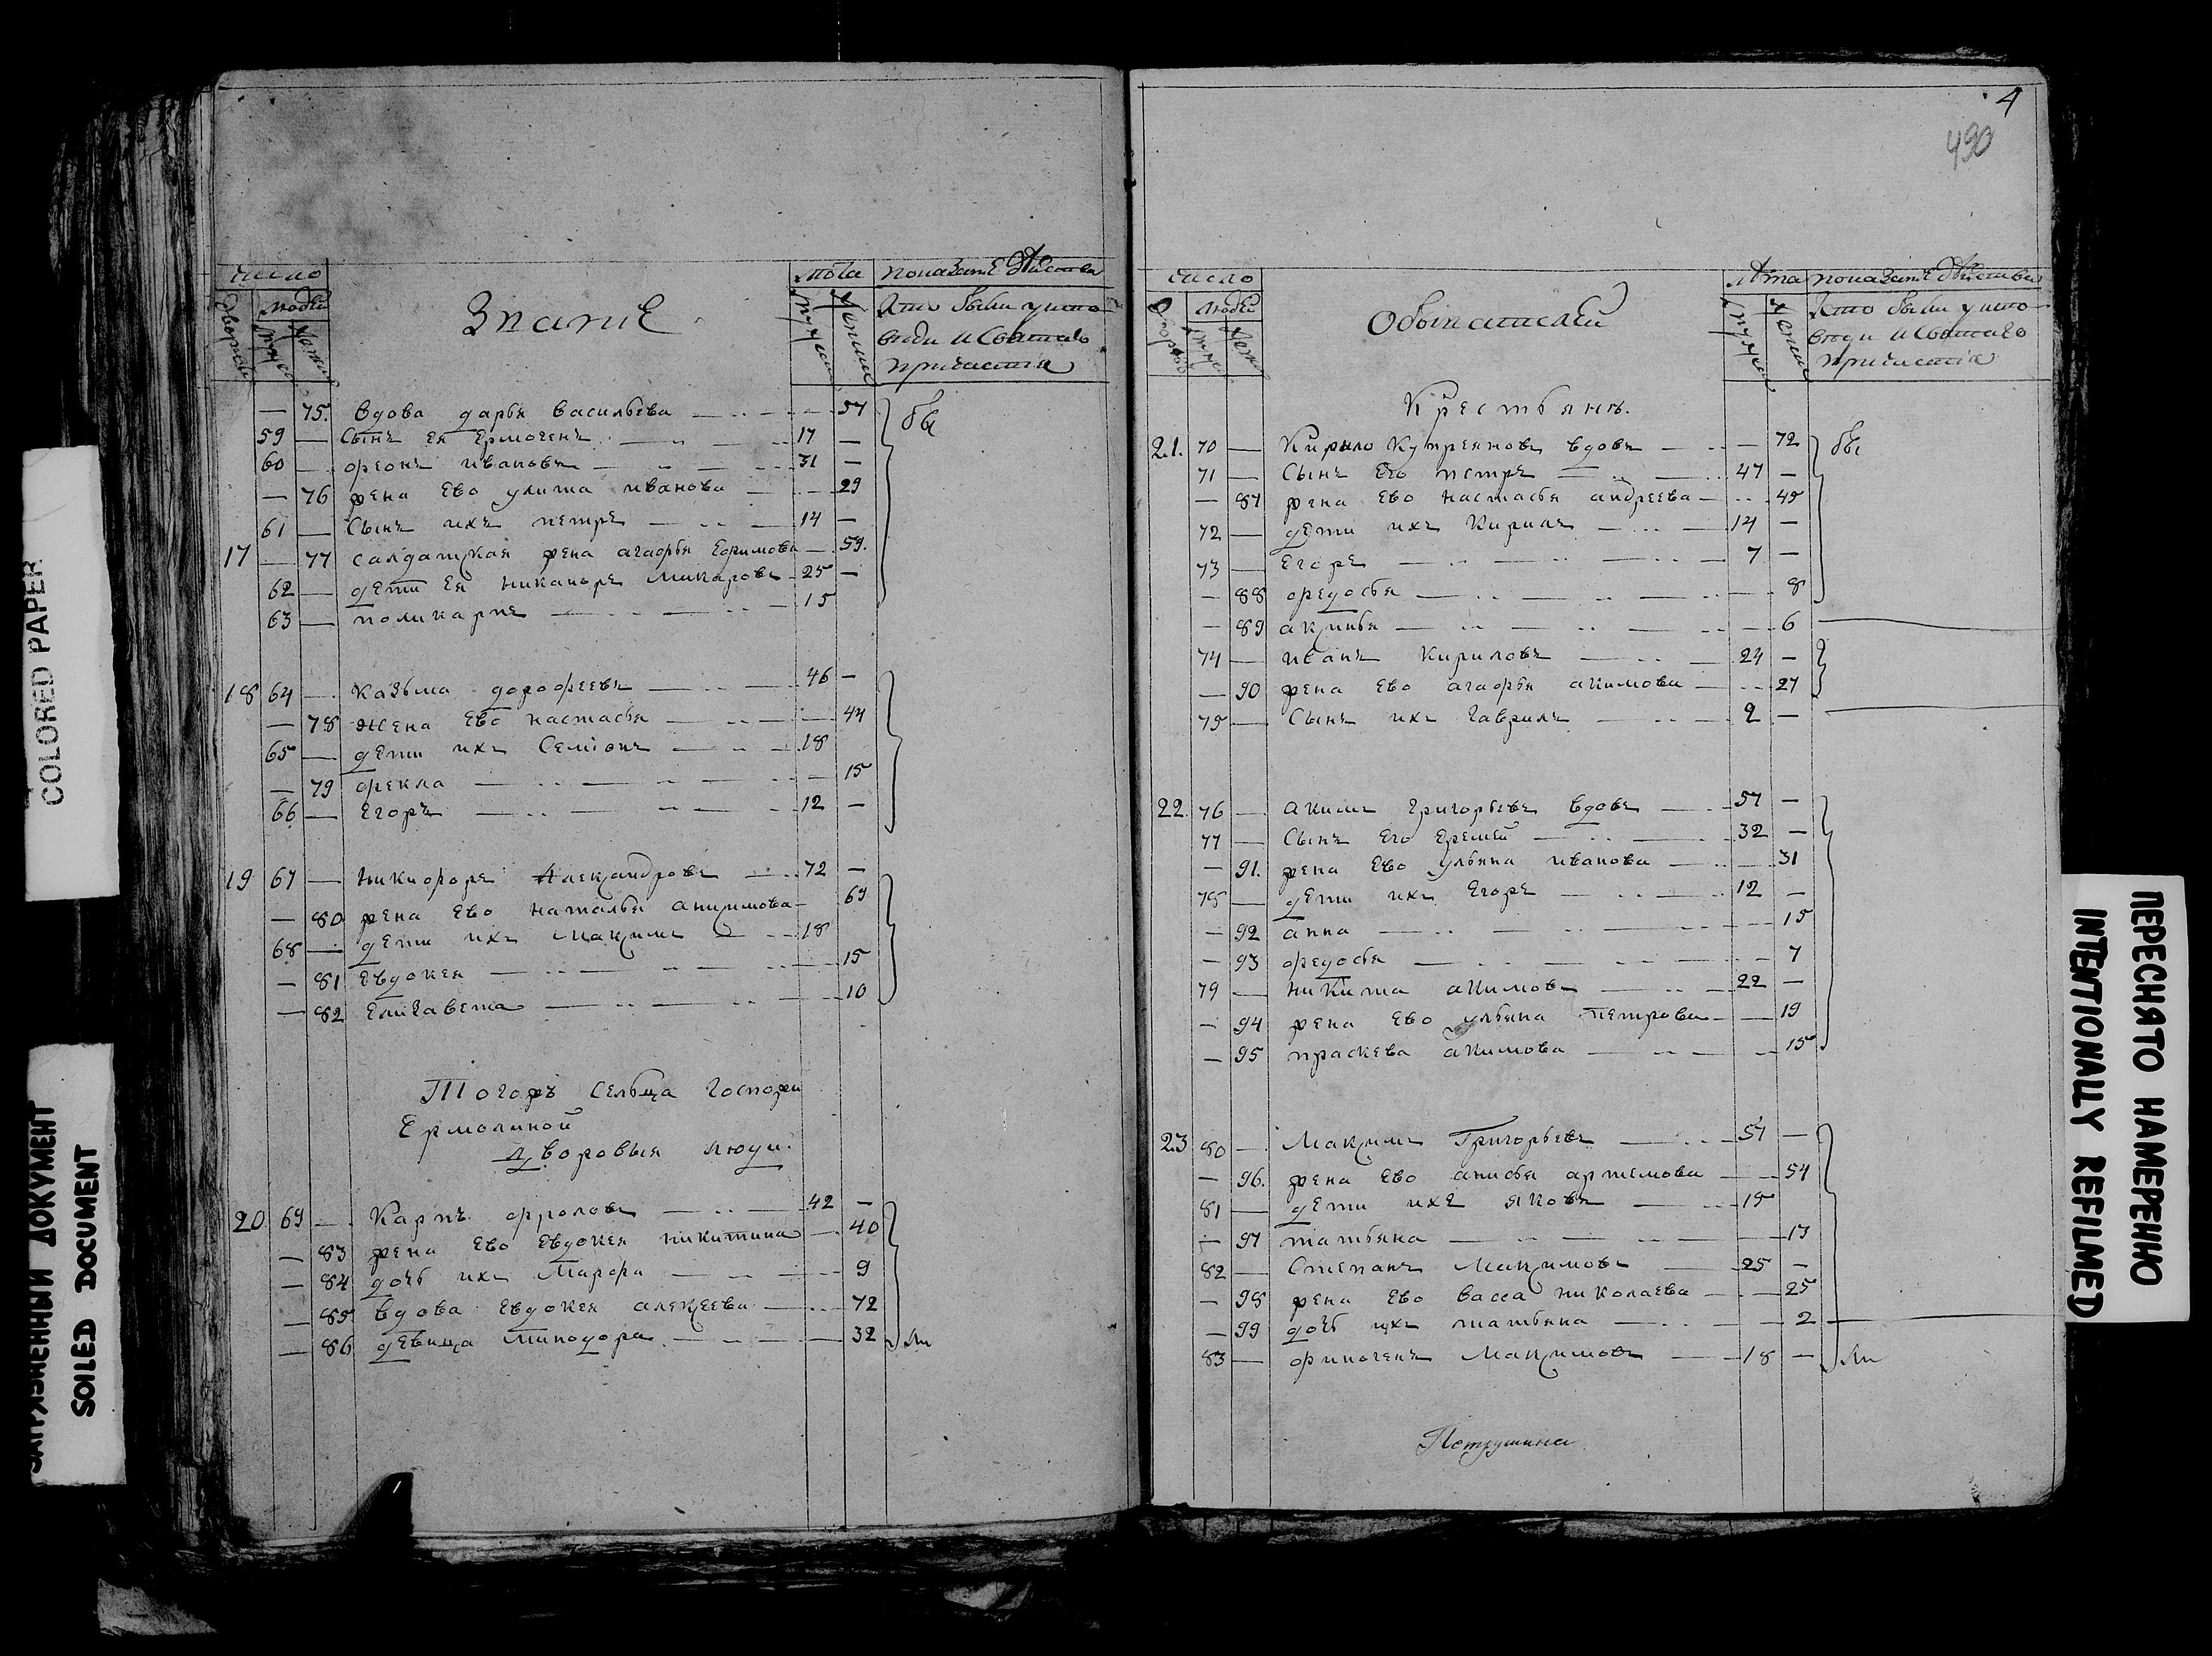 COLORED PAPER
ЗАГРЯЗНЕННЫЙ ДОКУМЕНТ
SOILED DOCUMENT
число
дворовъ
людей
Звание
лѣта
показание дѣйства
Кто были у испо
вѣди и Святаго
причастия
— 75. вдова дарья васильева — 57 — бы
59 — Сынъ ея Ермогенъ — 17 —
60 — фронъ ивановъ — 31 —
— 76 жена Ево улита иванова — 29
61 — Сынъ ихъ петръ — 14 —
17 — 77 салдатская жена агафья Ефимова — 59.
62 — дети Ея никаноръ макаровъ 25 —
63 — поликарпъ — 15
18 64 — Казьма дорофеевъ — 46 —
— 78 жена Ево настасья — 44
65 — дети ихъ Семионъ — 18
— 79 фекла — 15
66 — Егоръ — 12 —
19 67 — никифоръ Александровъ — 72 —
— 80 жена Ево наталья анисимова — 69
68 — дети ихъ Максимъ — 18
— 81 Евдокея — 15
— 82 Елизавета — 10
Тогожъ Сельца Госпожи
Ермолиной
дворовыя люди.
20 69 — Карпъ фроловъ — 42 —
— 83 жена Ево Евдокея никитина — 40
— 84 дочь ихъ Марфа — 9
— 85 вдова Евдокея алексеева — 72
— 86 девица минодора — 32 ли
4
490
число
людей
Обывателей
лѣта
показание дѣйства
Кто были у испо
вѣди и Святаго
причастия
Крестьяне.
21. 70 — Кирило Купреяновъ вдовъ — 72 бы
71 — Сынъ Его петръ — 47 —
— 87 жена Ево настасья андреева — 45
72 — дети ихъ Кирилъ — 14 —
73 — Егоръ — 7 —
— 88 федосья — 8
— 89 акулина — 6
74 — иванъ Кириловъ — 24 —
— 90 жена Ево агафья акимова — 27
75 — Сынъ ихъ Гаврилъ — 2 —
22. 76 — акимъ Григорьевъ вдовъ — 57 —
77 — Сынъ Его Еремей — 32 —
— 91. жена Ево ульяна иванова — 31
78 — дети ихъ Егоръ — 12 —
— 92 анна — 15
— 93 федосья — 7
79 — никита акимовъ — 22 —
— 94 жена Ево ульяна петрова — 19
— 95 праскева акимова — 15
23 80 — Максимъ Григорьевъ — 57 —
— 96. жена Ево анисья артемова — 54
81 — дети ихъ яковъ — 15
— 97 татьяна — 13
82 — Степанъ Максимовъ — 25 —
— 98 жена Ево васса николаева — 25
— 99 дочь ихъ татьяна — 2
83 — финогенъ Максимовъ — 18 — ли
Петрушина
ПЕРЕСНЯТО НАМЕРЕННО
INTENTIONALLY REFILMED